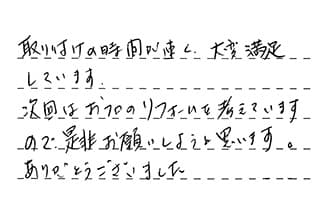 取り付けの時間が速く、大変満足
しています。
次回はおフロのリフォームを考えています
ので是非お願いしようと思います。
ありがとうございました